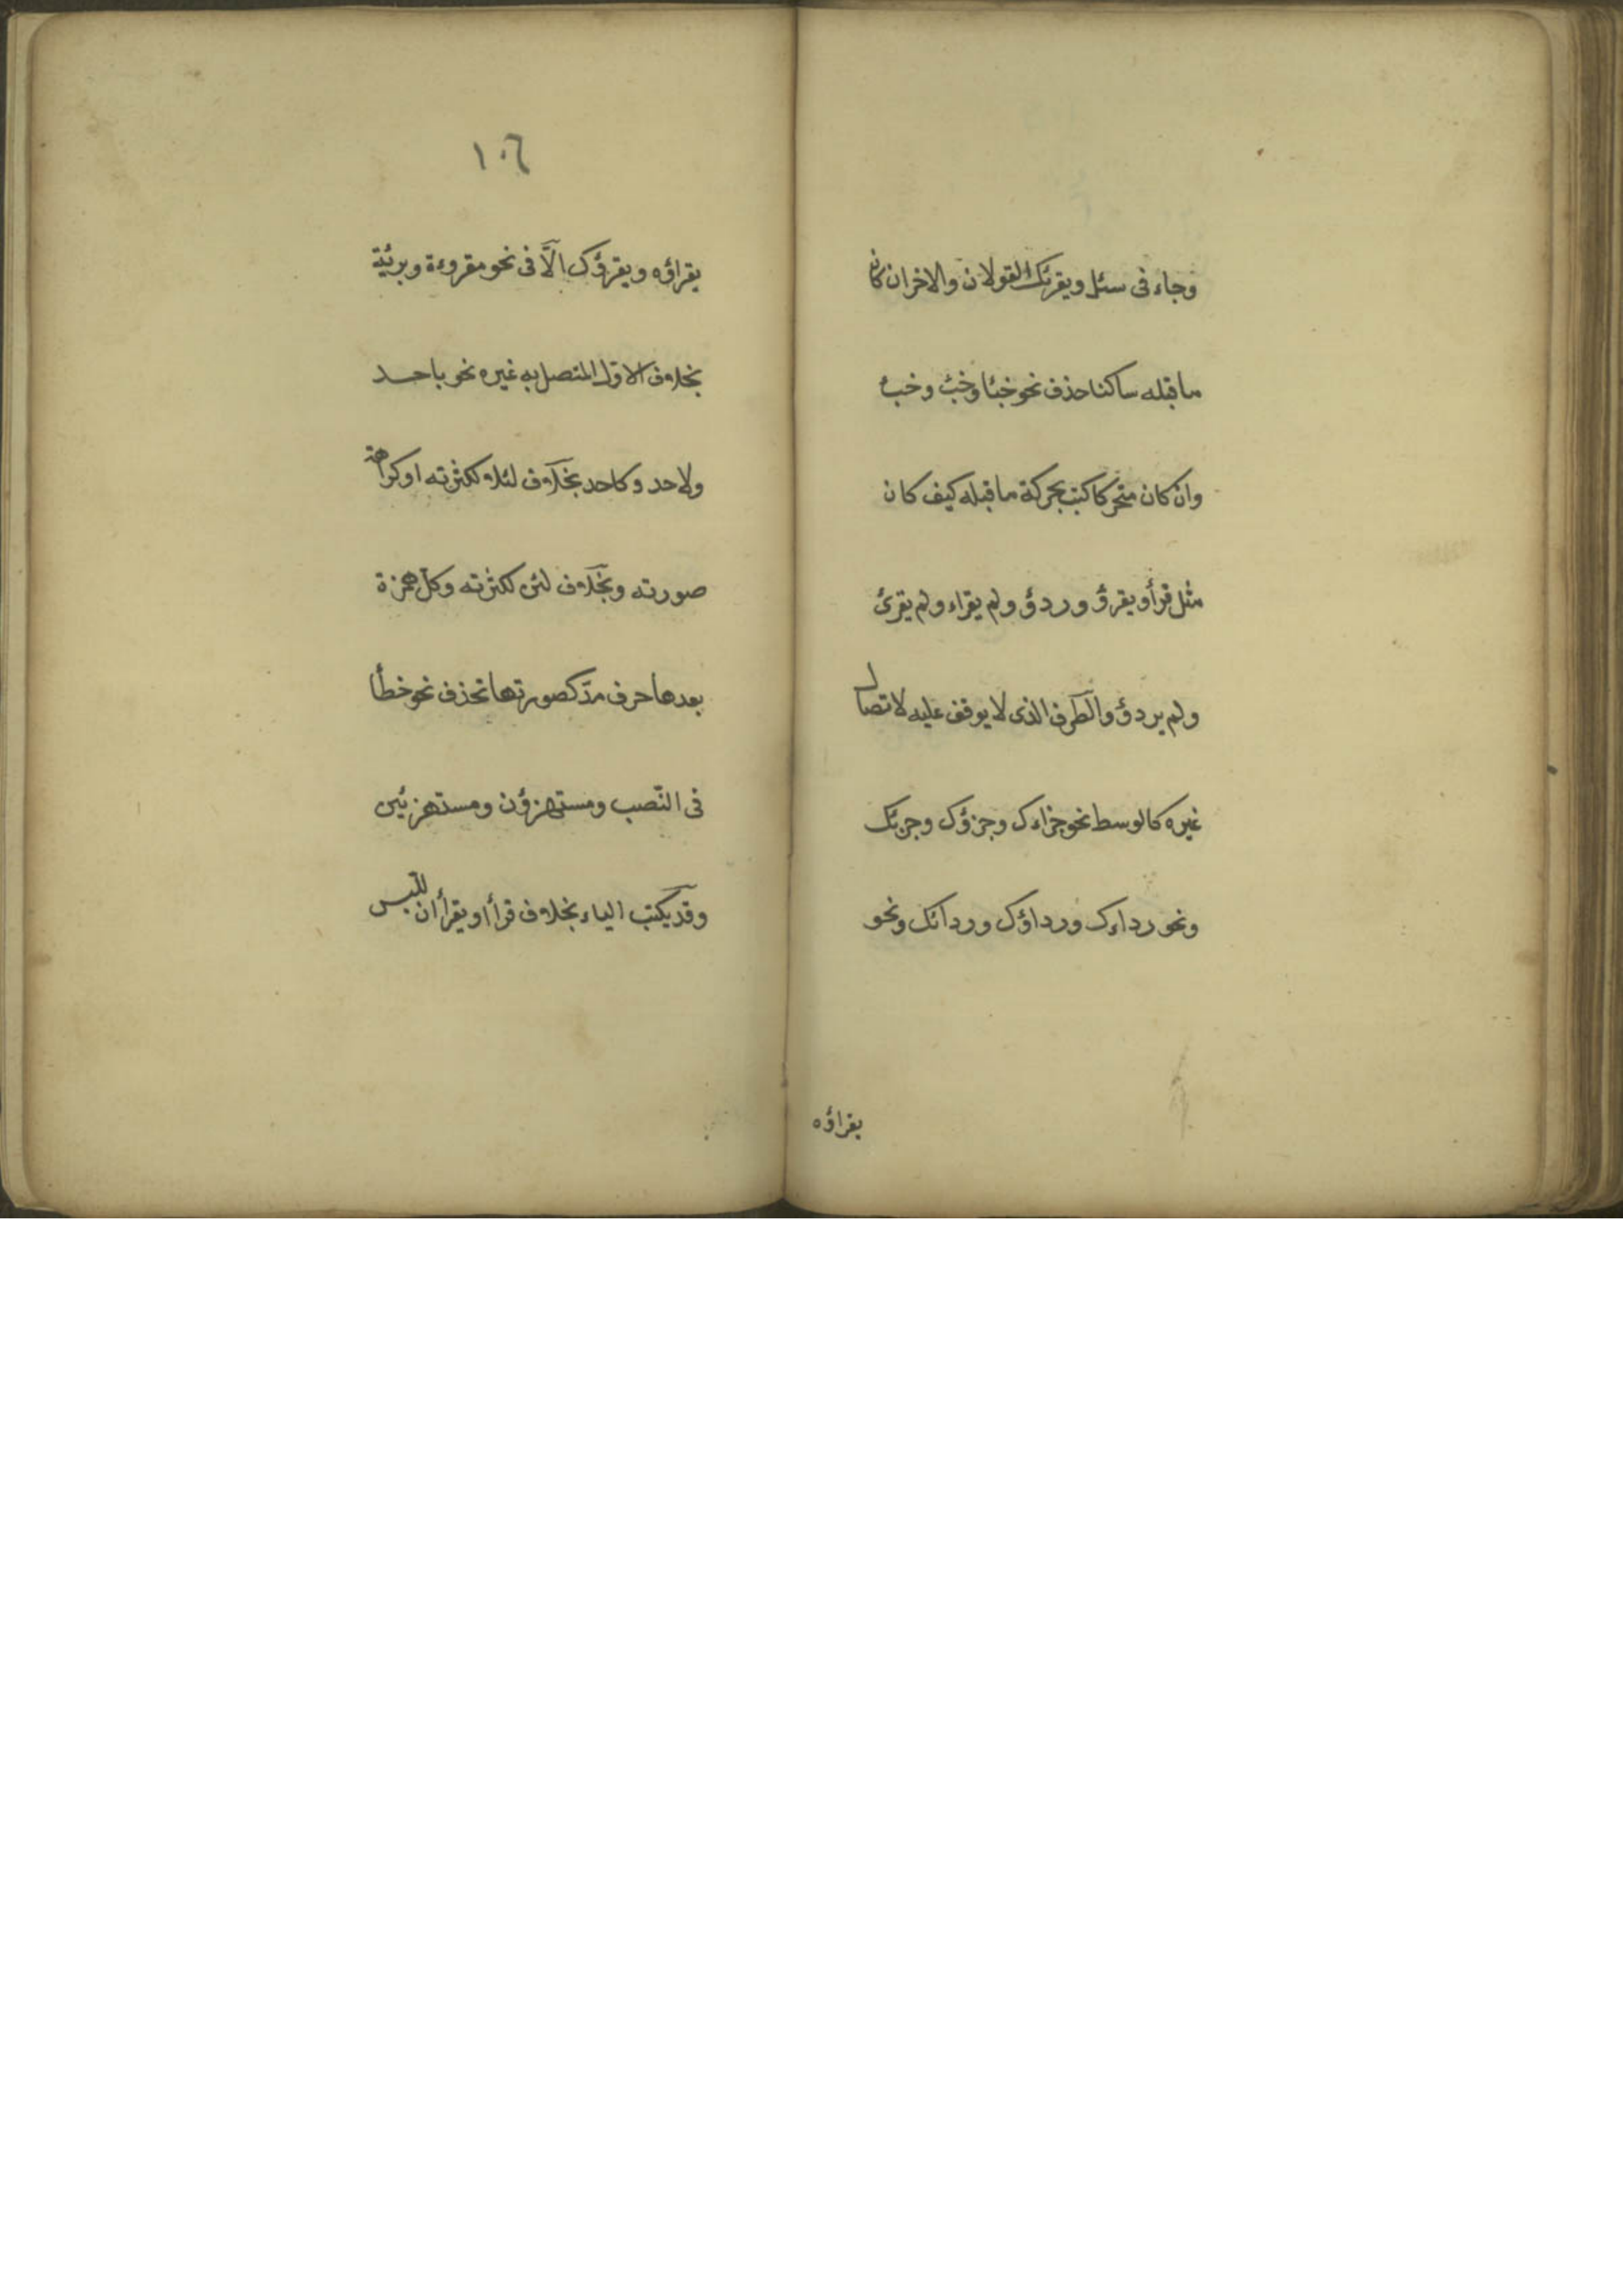 وجاء فى سئل ويقرئك القولان والاخران كان
ما قبله ساكنا حذف نحو خبئا وخبئ وخبء
وان كان متحركا كتب بحركة ما قبله كيف كان
مثل قرأ ويقرؤ وردؤ ولم يقراء ولم يقرئ
ولم يردؤ والطّرف الذى لا يوقف عليه لاتصال
غيره كالوسط نحو جزاءك وجزؤك وجزئك
ونحو رداءك ورداؤك وردائك ونحو
يقراؤه
١٠٦
يقراؤه ويقرؤك الّا فى نحو مقروءة وبريئة
بخلاف الاوّل المتصل به غيره نحو باحد
ولاحد وكاحد بخلاف لئلا لكثرته او كراهة
صورته وبخلاف لئن لكثرته وكلّ همزة
بعدها حرف مدّ كصورتها تحذف نحو خطأ
فى النّصب ومستهزؤن ومستهزئين
وقد يكتب الياء بخلاف قرأا ويقرأان للّبس